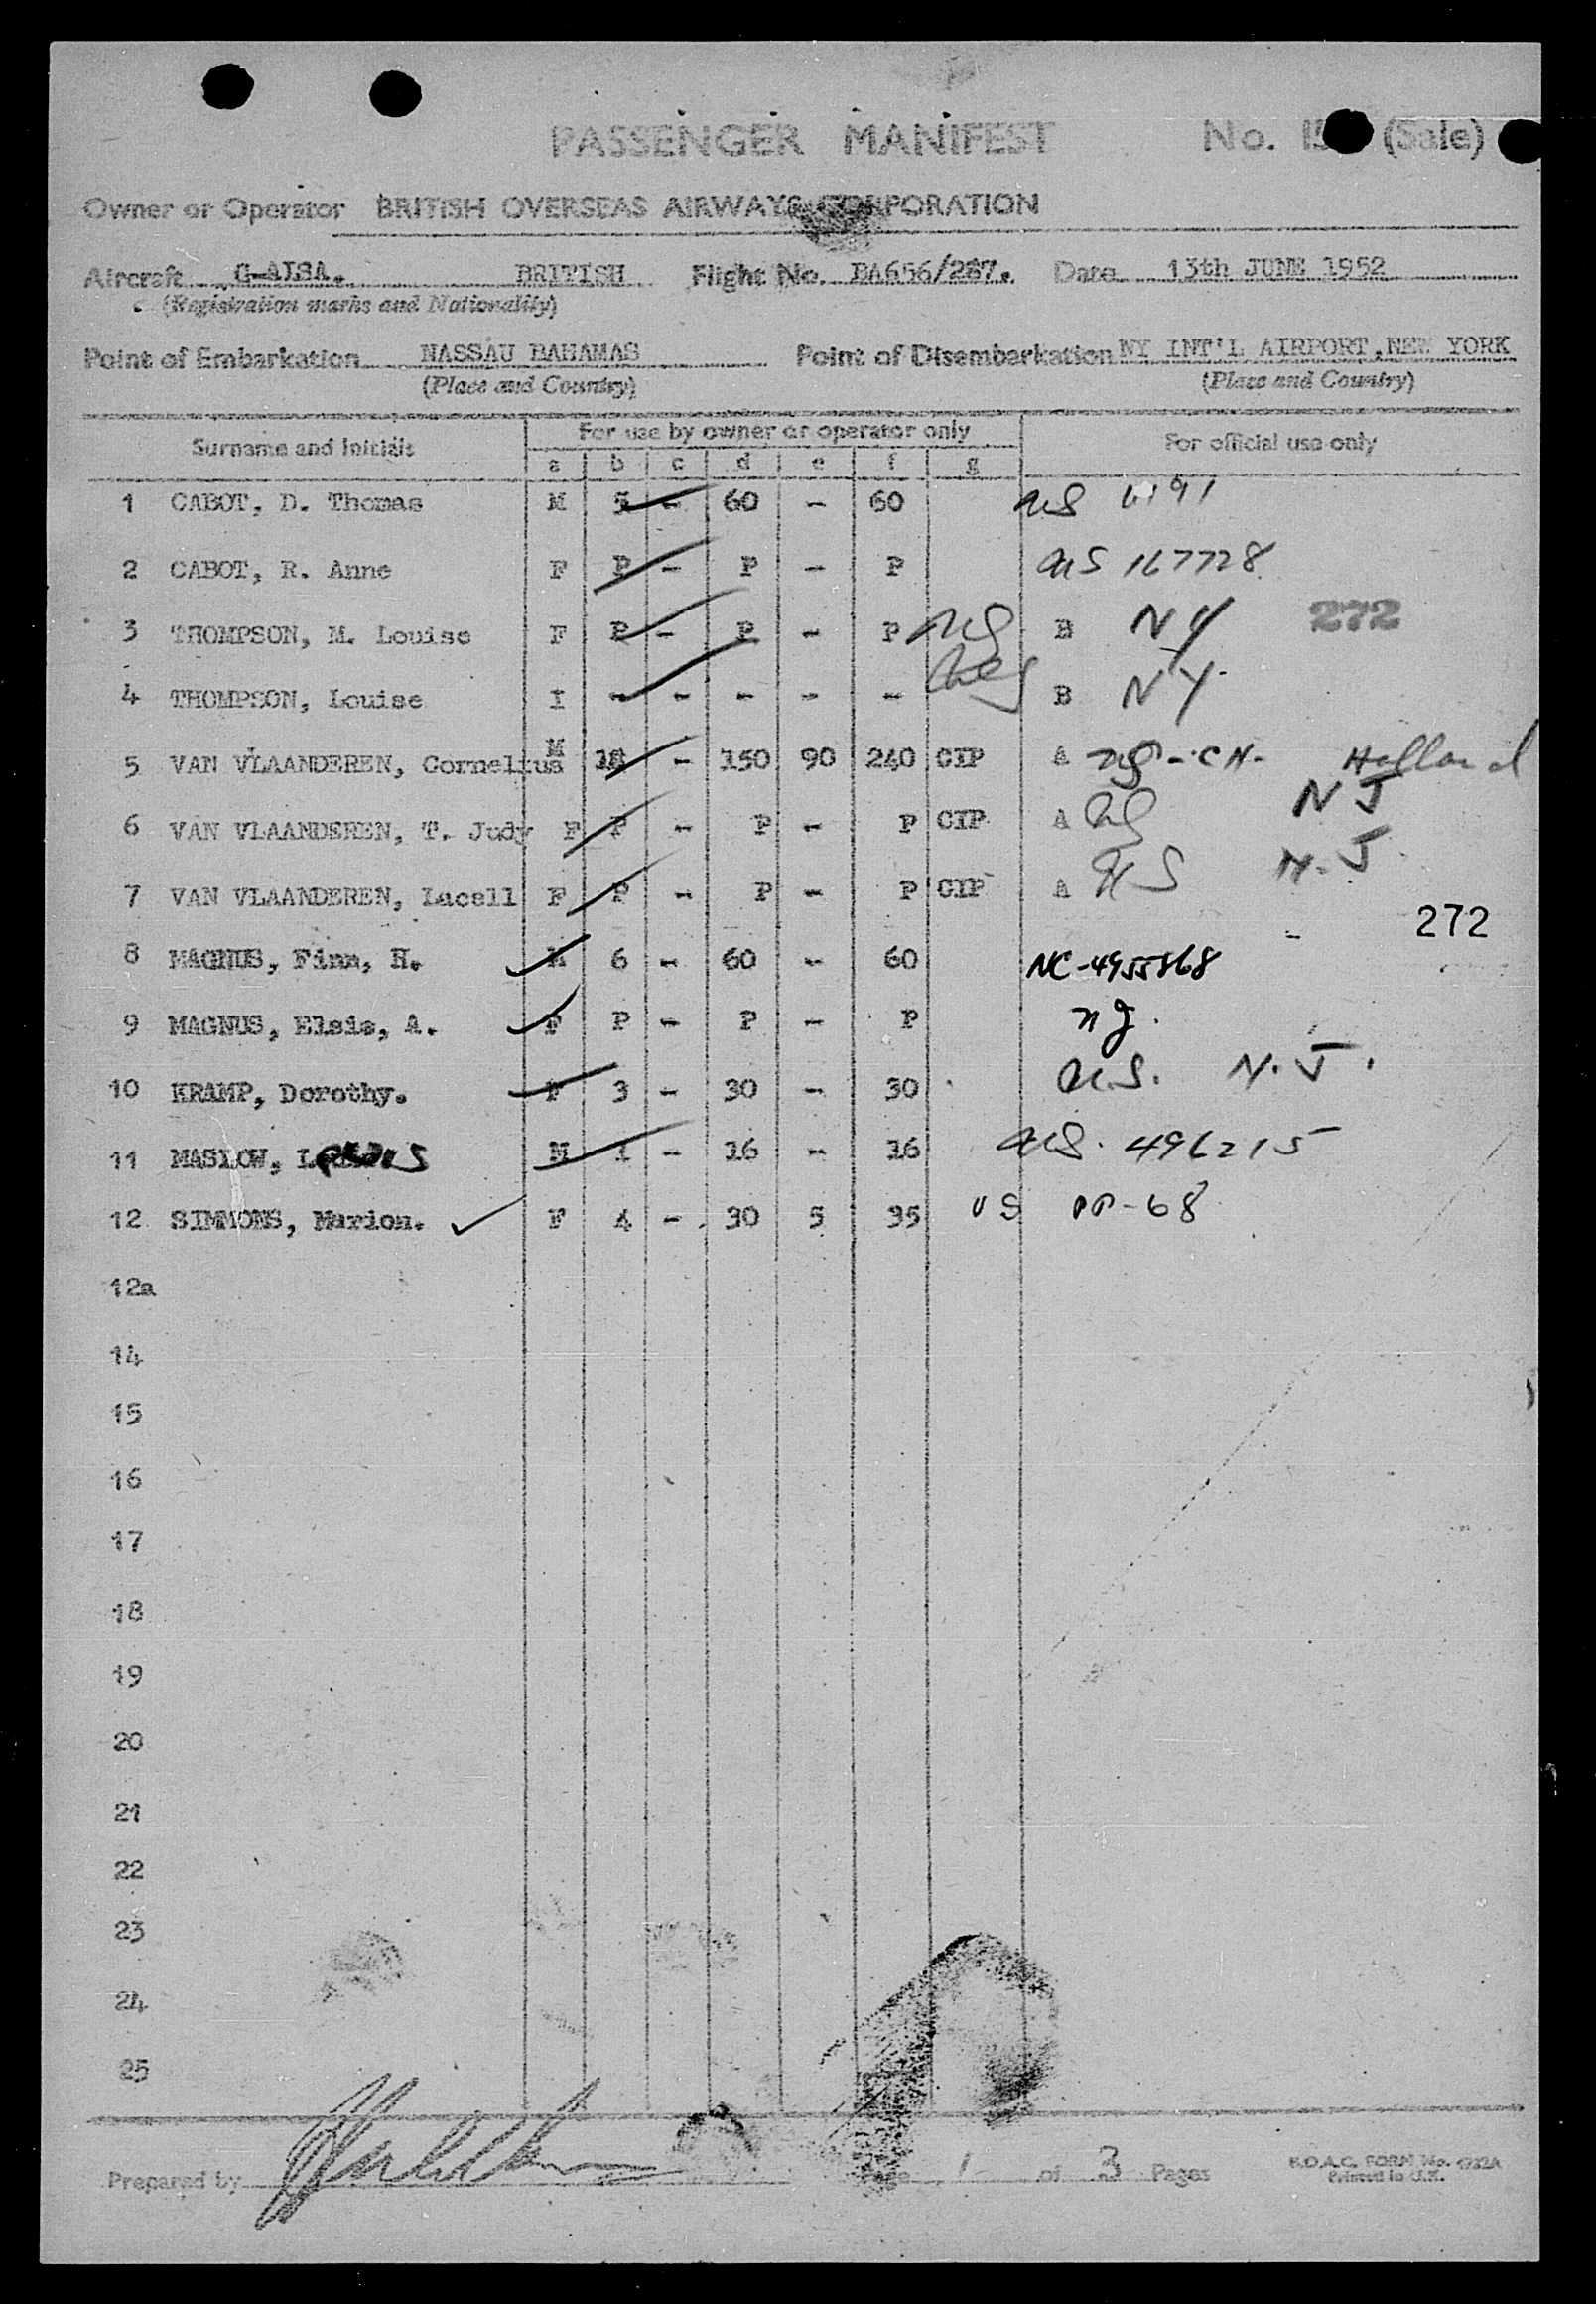 PASSENGER MANIFEST No. (Sale)
Owner or Operator BRITISH OVERSEAS AIRWAYS CORPORATION
Aircraft G-ALSA. BRITISH Flight No. BA656/287. Date 13th JUNE 1952
(Registration marks and Nationality)
Point of Embarkation NASSAU BAHAMAS Point of Disembarkation NY INT'L AIRPORT, NEW YORK
(Place and Country) (Place and Country)
Surname and Initials For use by owner or operator only For official use only
a b c d e f g
1 CABOT, D. Thomas M 5 - 60 - 60 US
2 CABOT, R. Anne F P - P - P US 167728
3 THOMPSON, M. Louise F P - P - P US B NY 272
4 THOMPSON, Louise I - - - - - US B NY.
5 VAN VLAANDEREN, Cornelius M 18 - 150 90 240 CIP A Holland
6 VAN VLAANDEREN, T. Judy F P - P - P CIP A US NJ
7 VAN VLAANDEREN, Lacell F P - P - P CIP A US N.J.
272
8 MAGNUS, Finn, H. M 6 - 60 - 60 NC-4955868
9 MAGNUS, Elsie, A. F P - P - P
10 KRAMP, Dorothy. F 3 - 30 - 30 U.S. N.J.
11 MASLOW, M 1 - 16 - 16 US. 496215
12 SIMMONS, Marion. F 4 - 30 5 35 US PP-68
12a
14
15
16
17
18
19
20
21
22
23
24
25
Prepared by Page 1 of 3 Pages
B.O.A.C. FORM No.
Printed in U.K.